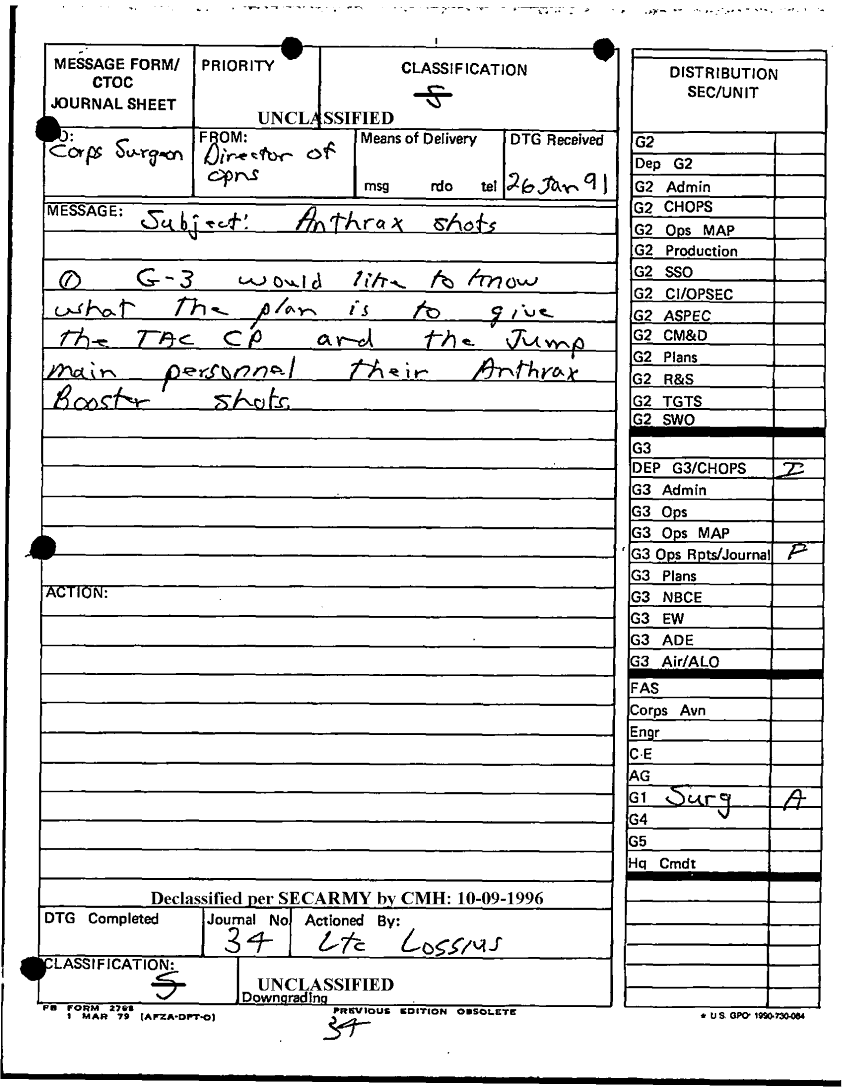 MESSAGE FORM/
CTOC
JOURNAL SHEET
PRIORITY
CLASSIFICATION
S
UNCLASSIFIED
TO:
Corps Surgeon
FROM:
Director of
opns
Means of Delivery
msg rdo tel
DTG Received
26 Jan 91
MESSAGE: Subject: Anthrax shots
① G-3 would like to know
what the plan is to give
the TAC CP and the Jump
main personnel their Anthrax
Booster shots.
ACTION:
Declassified per SECARMY by CMH: 10-09-1996
DTG Completed
Journal No
34
Actioned By:
Ltc Lossius
CLASSIFICATION:
S
UNCLASSIFIED
Downgrading
FB FORM 2798
1 MAR 79 (AFZA-DPT-O)
PREVIOUS EDITION OBSOLETE
34
DISTRIBUTION
SEC/UNIT
G2
Dep G2
G2 Admin
G2 CHOPS
G2 Ops MAP
G2 Production
G2 SSO
G2 CI/OPSEC
G2 ASPEC
G2 CM&D
G2 Plans
G2 R&S
G2 TGTS
G2 SWO
G3
DEP G3/CHOPS I
G3 Admin
G3 Ops
G3 Ops MAP
G3 Ops Rpts/Journal P
G3 Plans
G3 NBCE
G3 EW
G3 ADE
G3 Air/ALO
FAS
Corps Avn
Engr
C-E
AG
G1 Surg A
G4
G5
Hq Cmdt
* U.S. GPO: 1990-730-084